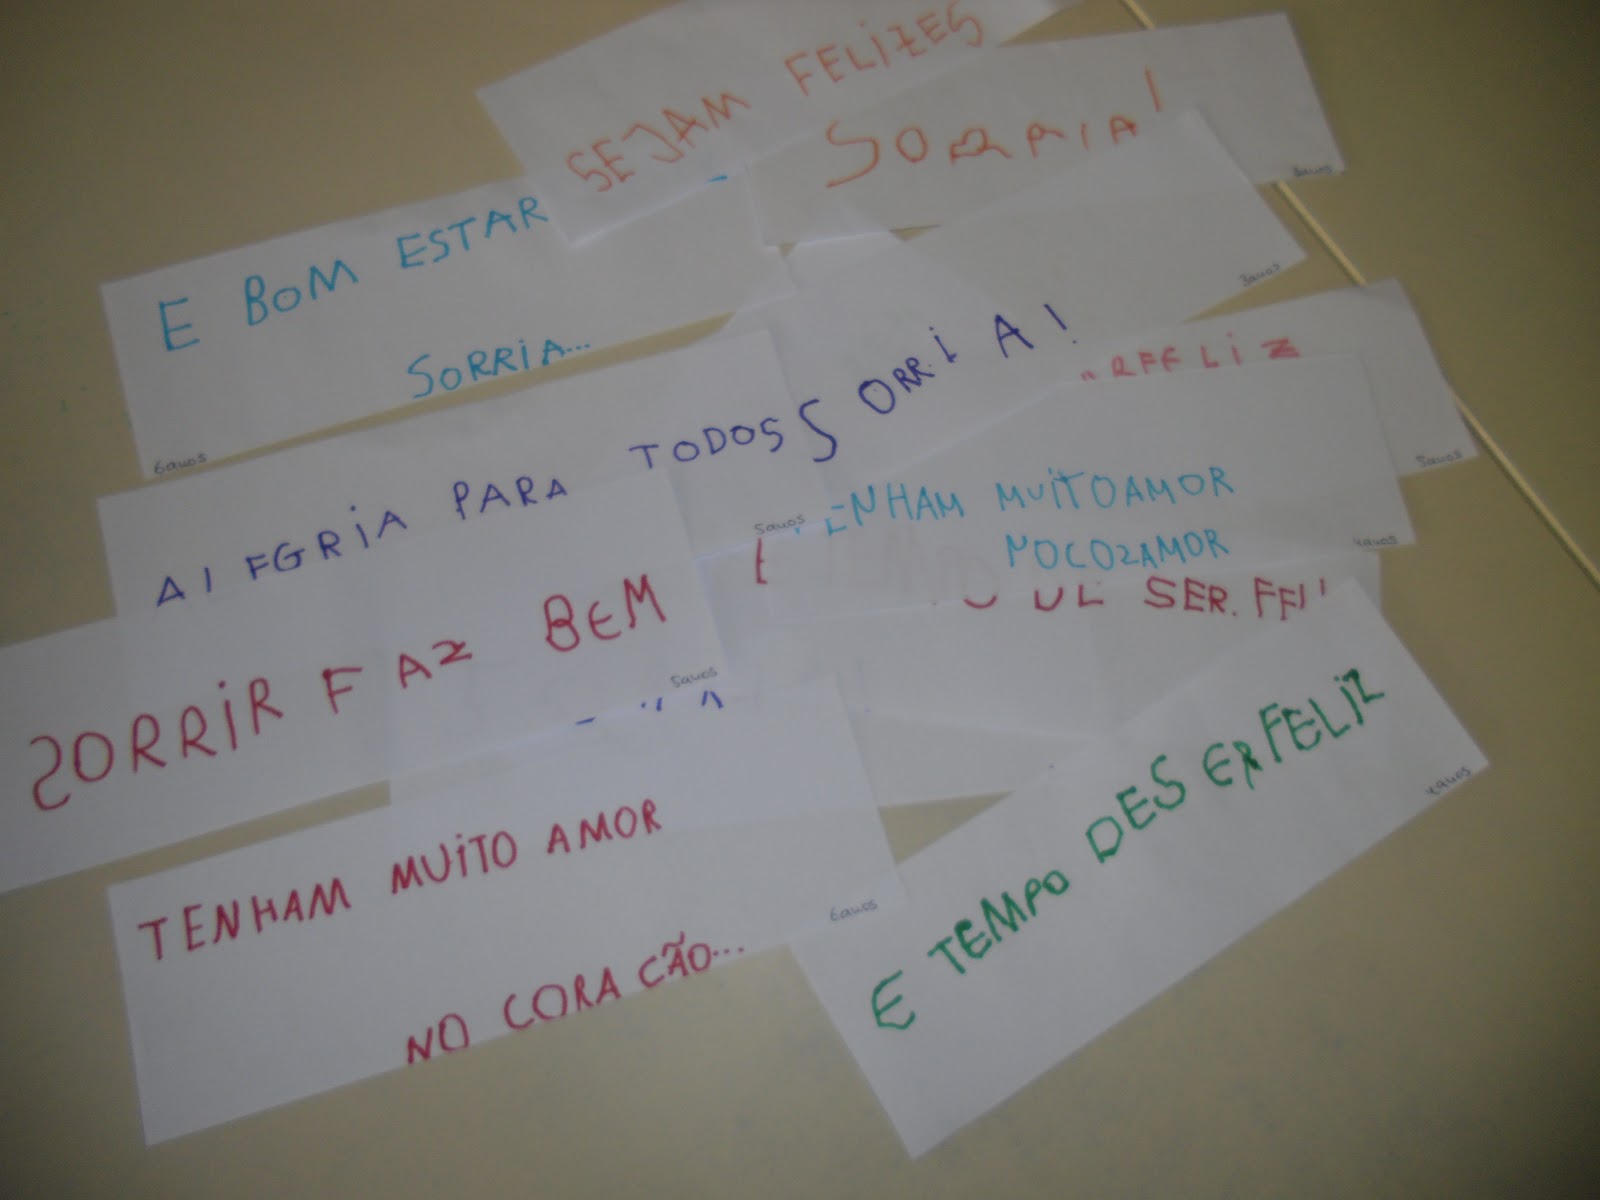 SEJAM FELIZES
SORRIA!
3anos
E BOM ESTAR
SORRIA...
6anos
3anos
SORRIA!
FELIZ
5anos
ALEGRIA PARA TODOS
5anos
ENHAM MUITOAMOR
NOCOZAMOR
4anos
SER.
SORRIR FAZ BEM
5anos
TENHAM MUITO AMOR
NO CORAÇÃO...
6anos
E TEMPO DES ERFELIZ
4anos